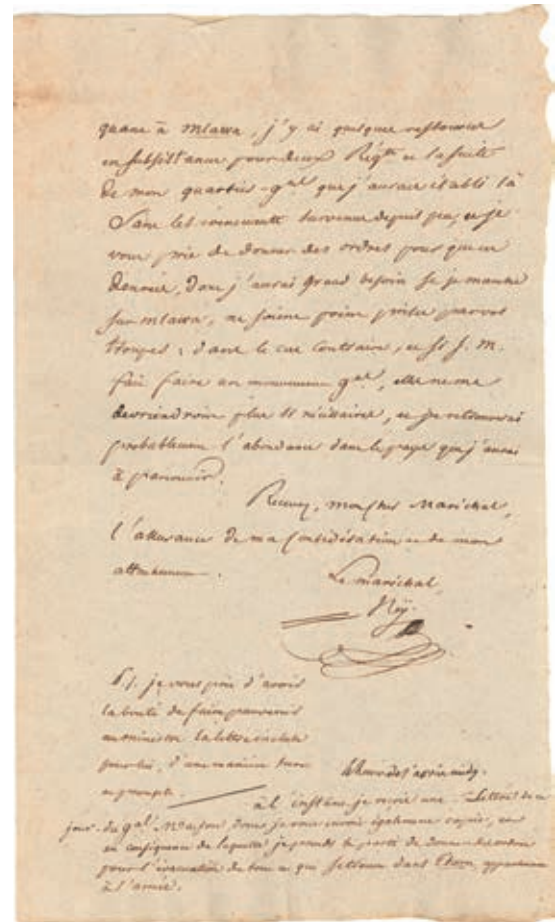 quant à Mlawa, j'y ai quelques ressources
en subsistance pour deux Régts et la suite
de mon quartier-gnal que j'aurais établi là
Sans les évènements survenus depuis peu, et je
vous prie de donner des ordres pour que ces
denrées, dont j'aurai grand besoin si je marche
sur Mlawa, ne soient point prises par vos
troupes ; dans le cas contraire, et si S. M.
fait faire un mouvement gal, elle ne me
deviendront plus si nécessaires, et je retrouverai
probablement l'abondance dans le pays que j'aurai
à parcourir.
Recevez, mon cher Maréchal,
l'assurance de ma considération et de mon
attachement.
Le Maréchal,
Ney
P.S. je vous prie d'avoir
la bonté de faire parvenir
au ministre la lettre incluse
pour lui, d'une manière sure
et prompte.
à l'instant je reçois une lettre de ce
jour du gal. dont je vous envoie également copie,
en conséquence de laquelle je prends le parti de donner des ordres
pour l'évacuation de tout ce qui se trouve dans Thorn, appartenant
à l'armée.